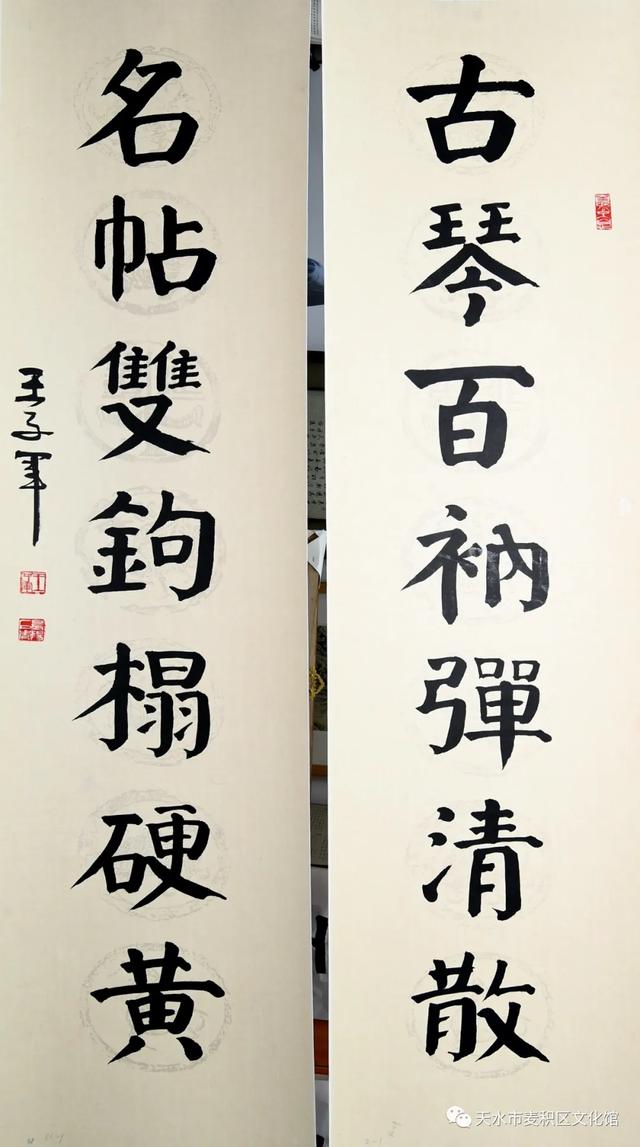 古琴百衲彈清散
名帖雙鉤榻硬黄
王子军
天水市麦积区文化馆